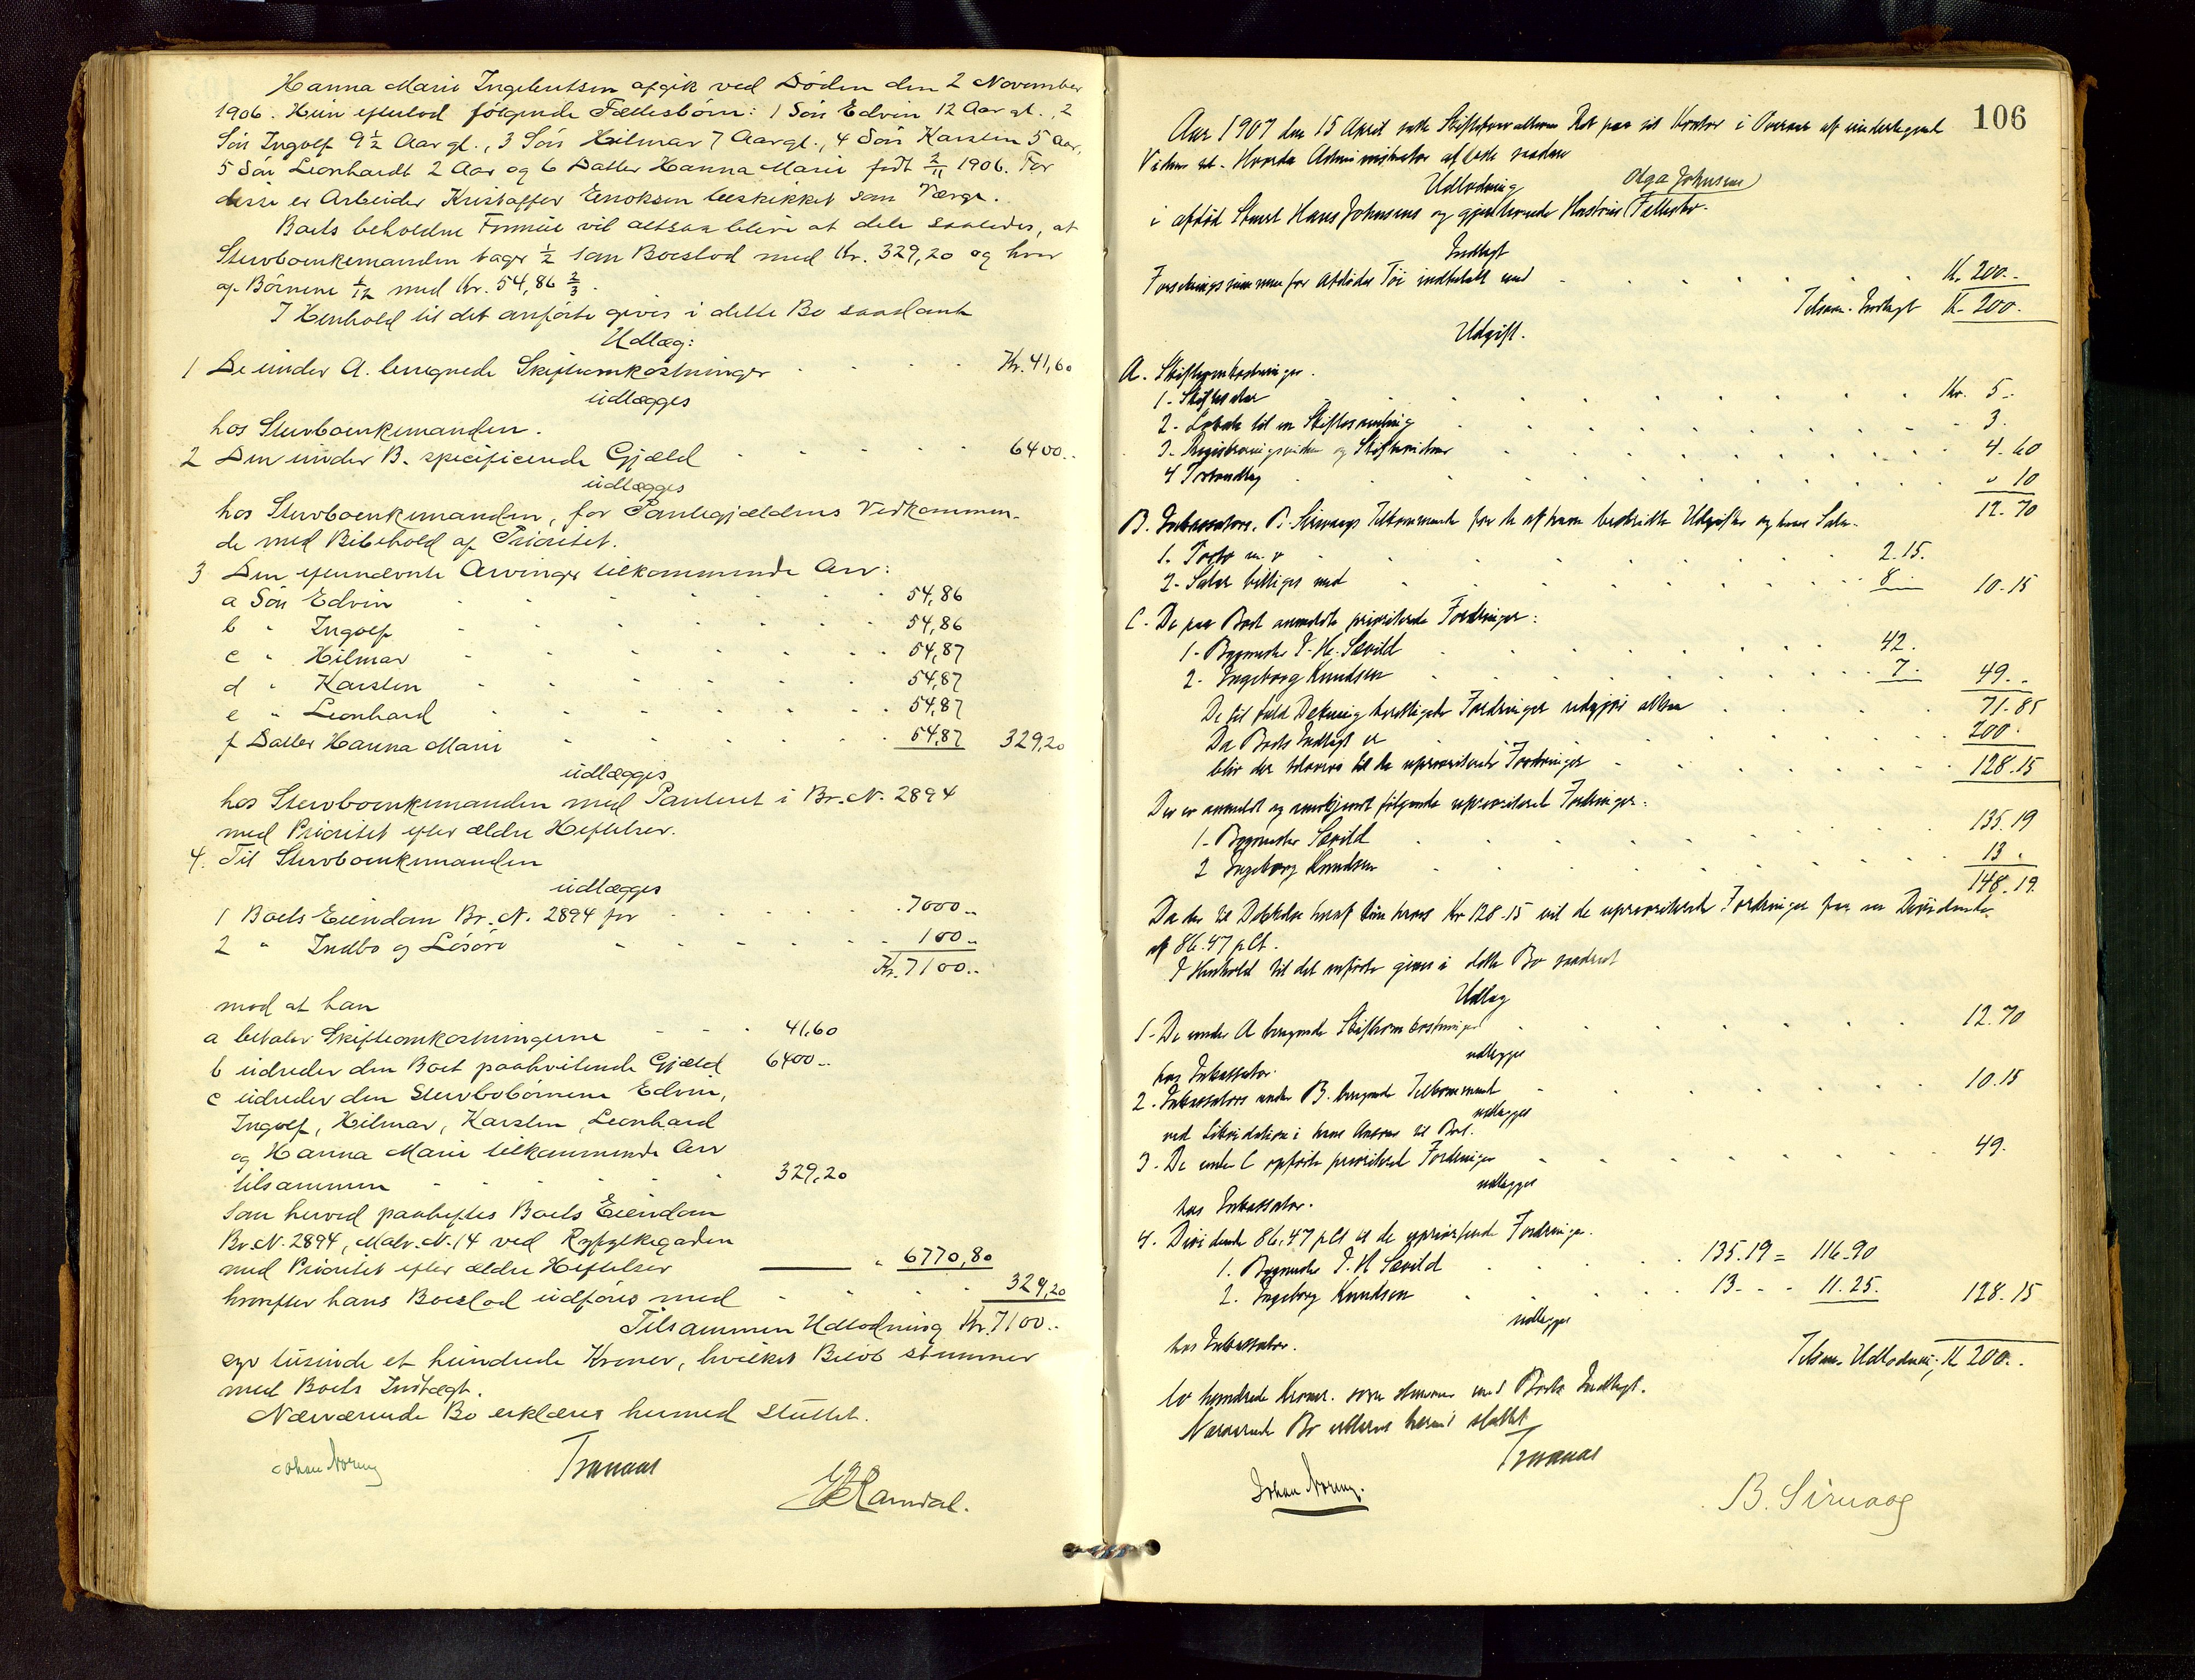 Hanna Marie Ingebretsen afgik ved Døden den 2 November
1906. Hun efterlod følgende Fællesbørn: 1 Søn Edvin 12 Aar gl., 2
Søn Ingolf 9½ Aar gl., 3 Søn Hilmar 7 Aar gl., 4 Søn Karsten 5 Aar,
5 Søn Leonhardt 2 Aar og 6 Datter Hanna Marie født 2/11 1906. For
disse er Arbeider Kristoffer Enoksen beskikket som Værge.
Boets beholdne Formue vil altsaa blive at dele saaledes, at
Stervboenkemanden tager ½ som Boeslod med Kr. 329,20 og hver
af Børnene 1/12 med Kr. 54,86 2/3.
I Henhold til det anførte gives i dette Bo saadant
Udlæg:
1 De under A. beregnede Skifteomkostninger Kr. 41,60
udlægges
hos Stervboenkemanden.
2 Den under B. specificerede Gjæld 6400..
udlægges
hos Stervboenkemanden, for Pantegjældens Vedkommen-
de med Bibehold af Prioritet.
3 Den efternævnte Arvinger tilkommende Arv:
a Søn Edvin 54,86
b " Ingolf 54,86
c " Hilmar 54,87
d " Karsten 54,87
e " Leonhard 54,87
f Datter Hanna Marie 54,87 329,20
udlægges
hos Stervboenkemanden med Panteret i Br. N. 2894
med Prioritet efter ældre Heftelser.
4. Til Stervboenkemanden
udlægges
1 Boets Eiendom Br. N. 2894 for 7000..
2 " Indbo og Løsøre 100..
Kr. 7100..
mod at han
a betaler Skifteomkostningerne 41,60
b udreder den Boet paahvilende Gjæld 6400..
c udreder den Stervbobørnene Edvin,
Ingolf, Hilmar, Karsten, Leonhard
og Hanna Marie tilkommende Arv
tilsammen 329,20
som herved paaheftes Boets Eiendom
Br. N. 2894, Matr. N. 14 ved Ryfylkegaden
med Prioritet efter ældre Heftelser " 6770,80
hvorefter hans Boeslod udføres med 329,20
Tilsammen Udlodning Kr. 7100..
syv tusinde et hundrede Kroner, hvilket Beløb stemmer
med Boets Indtægt.
Nærværende Bo erklæres hermed sluttet.
Johan Noreng Tranaas
106
Aar 1907 den 15 April satte Skifteforvalteren Ret paa sit Kontor i Overvær af undertegnede
Vidner
Udlodning Olga Johnsens
i afdød Hans Johnsens og gjenlevende Hustrues Fællesbo.
Indtægt
Forsikringssummen for Afdødes Tøi indbetalt med K. 200..
Tilsam. Indtægt K. 200.
Udgift.
A. Skifteomkostninger.
1. Skiftesalær Kr. 5.
2. Lokale til en Skiftesamling 3.
3. Registreringsvidner og Skiftevidner 4.60
4 Forhandling " 10
12.70
B. Inkassators, B. Sirnaags Tilkommende for de af ham bestridte Udgifter og hans Salær.
1. Porto m. v 2.15.
2. Salær billiges med 8 10.15
C. De paa Boet anmeldte prioriterede Fordringer:
1. Bygmester T. H. Sævild 42.
2. Ingeborg Knudsen 7. 49..
De til fuld Dækning berettigede Fordringer udgjør altsaa 71.85
Da Boets Indtægt er 200.
blir der tilovers til de uprioriterede Fordringer 128.15
Der er anmeldt og anerkjendt følgende uprioriterede Fordringer:
1. Bygmester Sævild 135.19
2 Ingeborg Knudsen 13.
148.19.
Da der til Dækkelse heraf kun haves Kr 128.15 vil de uprioriterede Fordringer faa en Dividende
af 86.47 pCt.
I Henhold til det anførte gives i dette Bo saadant
Udlæg
1. De under A beregnede Skifteomkostninger 12.70
udlægges
hos Inkassator.
2. Inkassators under B. beregnede Tilkommende 10.15
udlægges
ved Likvidation i hans Ansvar til Boet.
3. De under C opførte prioriterede Fordringer 49.
udlægges
hos Inkassator.
4. Dividende 86.47 pCt af de uprioriterede Fordringer.
1. Bygmester T. H Sævild 135.19 = 116.90
2. Ingeborg Knudsen 13. - - 11.25. 128.15
udlægges
hos Inkassator.
Tilsam. Udlodning K 200..
to hundrede Kroner. som stemmer med Boets Indtægt.
Nærværende Bo erklæres hermed sluttet
Tranaas
Johan Noreng.
B. Sirnaag